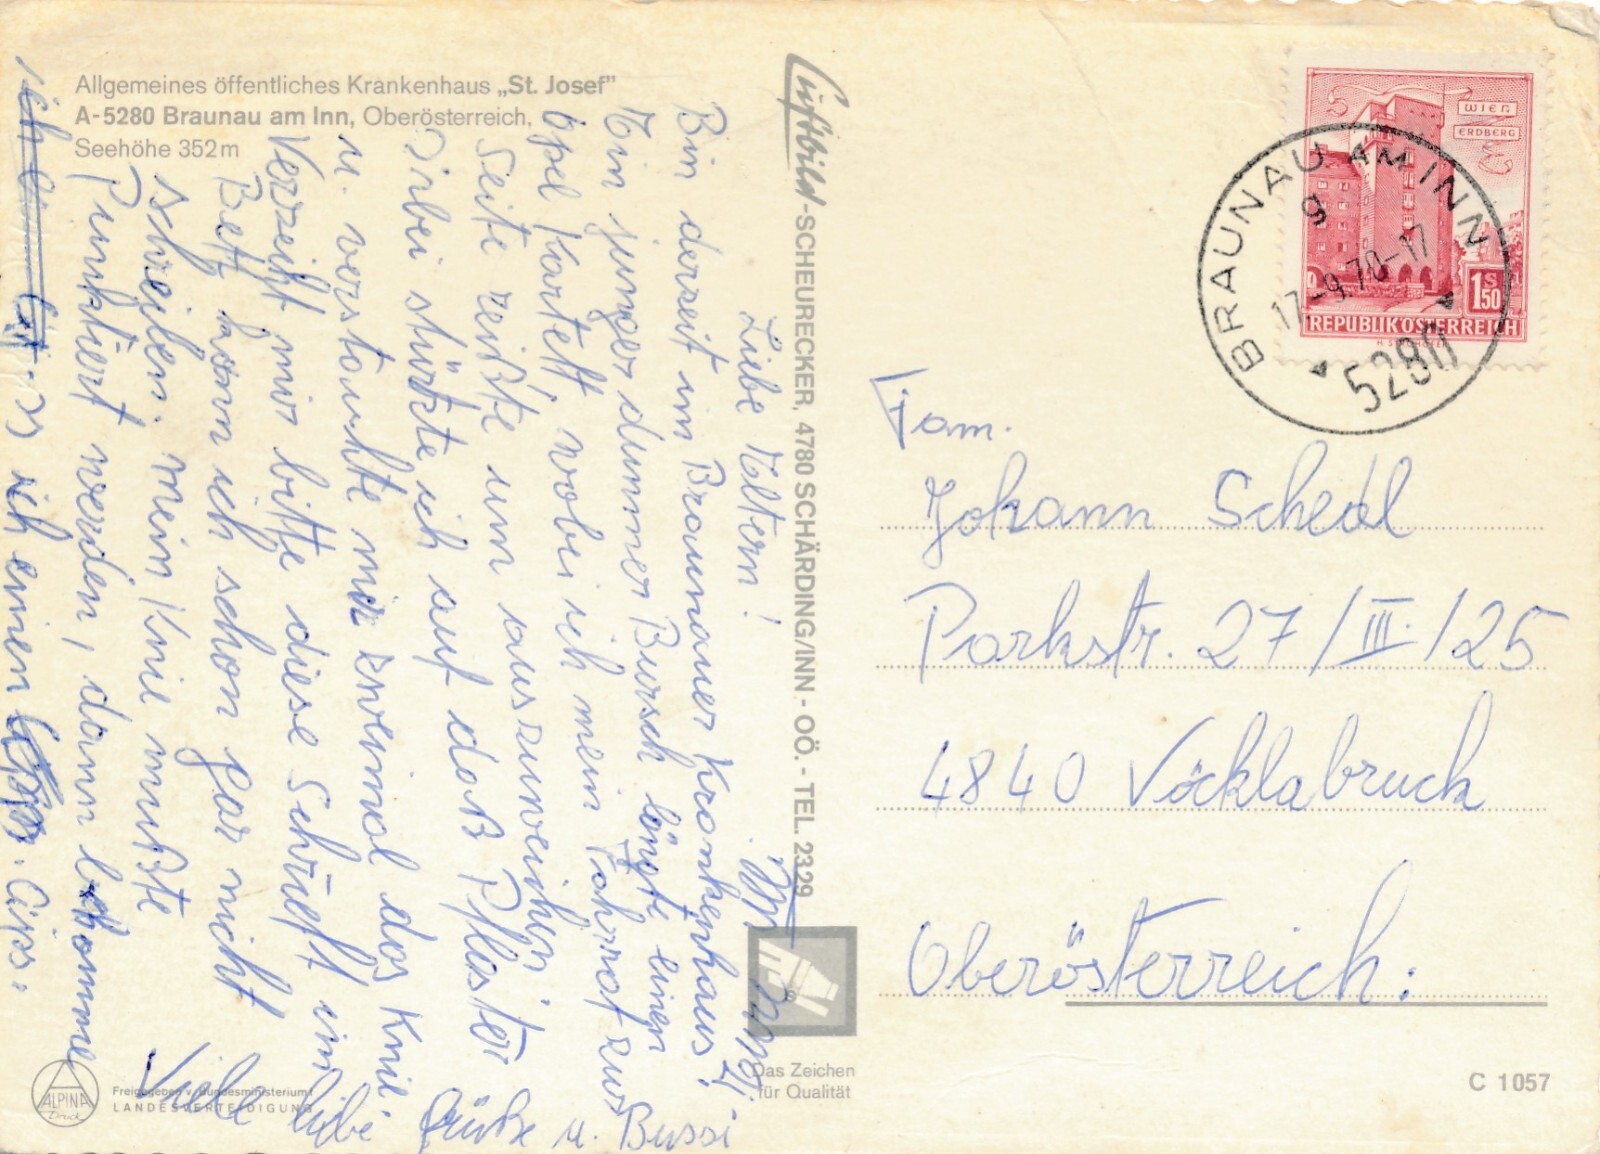 Allgemeines öffentliches Krankenhaus „St. Josef"
A-5280 Braunau am Inn, Oberösterreich,
Seehöhe 352m
Luftbild-SCHEURECKER, 4780 SCHÄRDING/INN - OÖ. - TEL. 2329
WIEN
ERDBERG
1 S 50
REPUBLIK ÖSTERREICH
BRAUNAU AM INN
g
17.-9.70-17
5280
Liebe Eltern!
Bin derzeit im Braunauer Krankenhaus!
Ein junger dummer Bursch längte einen
Opel Kartett wobei ich mein Fahrrat zur
Seite reißte um auszuweichen.
Dirbei stürkte ich auf daß Pflaster
u. verstauhte mir zweimal das Knie.
Verzeiht mir bitte diese Schrieft im
Bett kann ich schon gar nicht
schreiben. Mein Knie mußte
Punktiert werden, dann bekomme
ich einen Gips.
Viele liebe Grüße u. Bussi
Fam.
Johann Schedl
Parkstr. 27/III./25
4840 Vöcklabruck
Oberösterreich:
Das Zeichen
für Qualität
ALPINA
Druck
Freigegeben v. Bundesministerium f.
LANDESVERTEIDIGUNG
C 1057